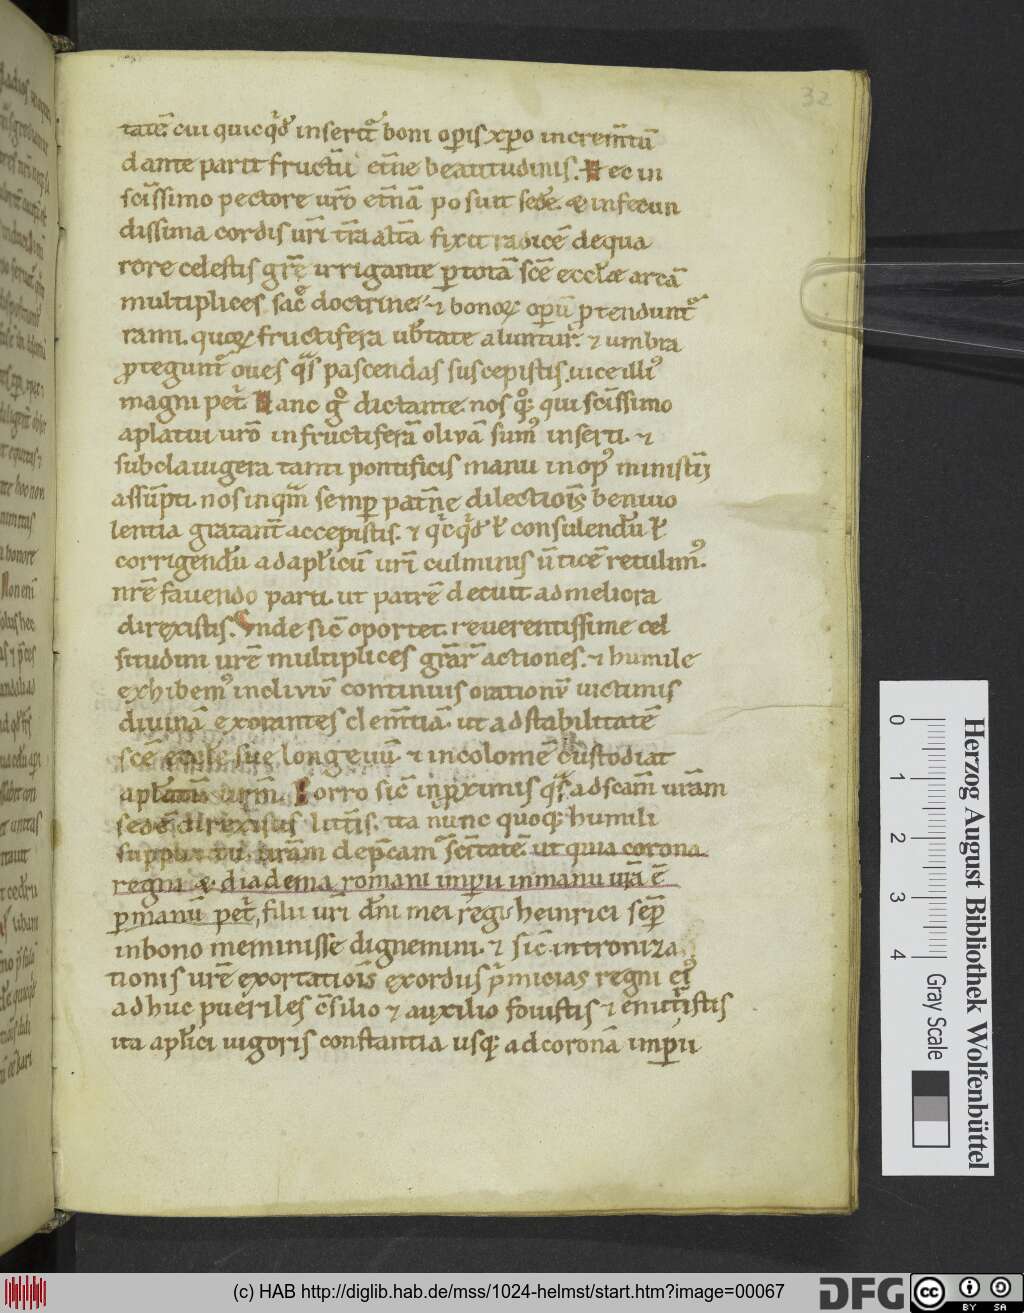 32
tatē cui quicq̇d inserit̄ boni opis xpo incrementū
dante parit fructū et̄ne beatitudinis. Hec in
scīssimo pectore ur̄o et̄nā posuit sedē. & infecun
dissima cordis ur̄i t̄ra alta fixit radicē de qua
rore celestis grē irrigante p totā scē ecclæ areā
multiplices sac̄ doctrine ⁊ bonoꝝ opū ptendunt᷑
rami. quoꝝ fructifera ub̄tate aluntur. ⁊ umbra
ꝓtegunt᷑ oues q̄s pascendas suscepistis uice illi᷒
magni pet̄. Hanc g̊ dictante nos qꝫ qui scīssimo
aplatui ur̄o in fructiferā oliuā sum᷒ inserti. ⁊
sub clauigera tanti pontificis manu in op᷒ minist̄ii
assūpti. nos inqm̄ semp pat̄ne dilectiois̄ beniuo
lentia gratant̄ accepistis. ⁊ q̄cq̇d ł consulendū ł
corrigendū ad aplicū ur̄i culminis ūticē retulim᷒.
nr̄e fauendo parti. ut patrē decuit. ad meliora
direxistis. Vnde sic̄ oportet. reuerentissime cel
situdini ur̄e multiplices grar̄ actiones. ⁊ humile
exhibem᷒ inclinū continuis orationū uictimis
diuinā exorantes clem̄tiā. ut ad stabilitatē
scē eccle sue longeuū ⁊ incolomē custodiat
aplatū ur̄m. Porro sic̄ in ꝓximis q̄s ad scam̄ ur̄am
sedē direximus litt̄is. ita nunc quoqꝫ humili
supplicatu ur̄am dep̄cam̄ scītatē ut quia corona
regni & diadema romani impii in manu ur̄a ē
p manū pet̄, filii ur̄i dn̄i mei regis heinrici sēp
in bono meminisse dignemini. ⁊ sic̄ introniza
tionis ur̄e exortatiois̄ exordiis p̄micias regni ei᷒
adhuc pueriles c̄silio ⁊ auxilio fouistis ⁊ enutristis
ita aplici uigoris constantia usqꝫ ad coronā impii
0 1 2 3 4
Herzog August Bibliothek Wolfenbüttel
Gray Scale
(c) HAB http://diglib.hab.de/mss/1024-helmst/start.htm?image=00067
DFG
cc BY SA